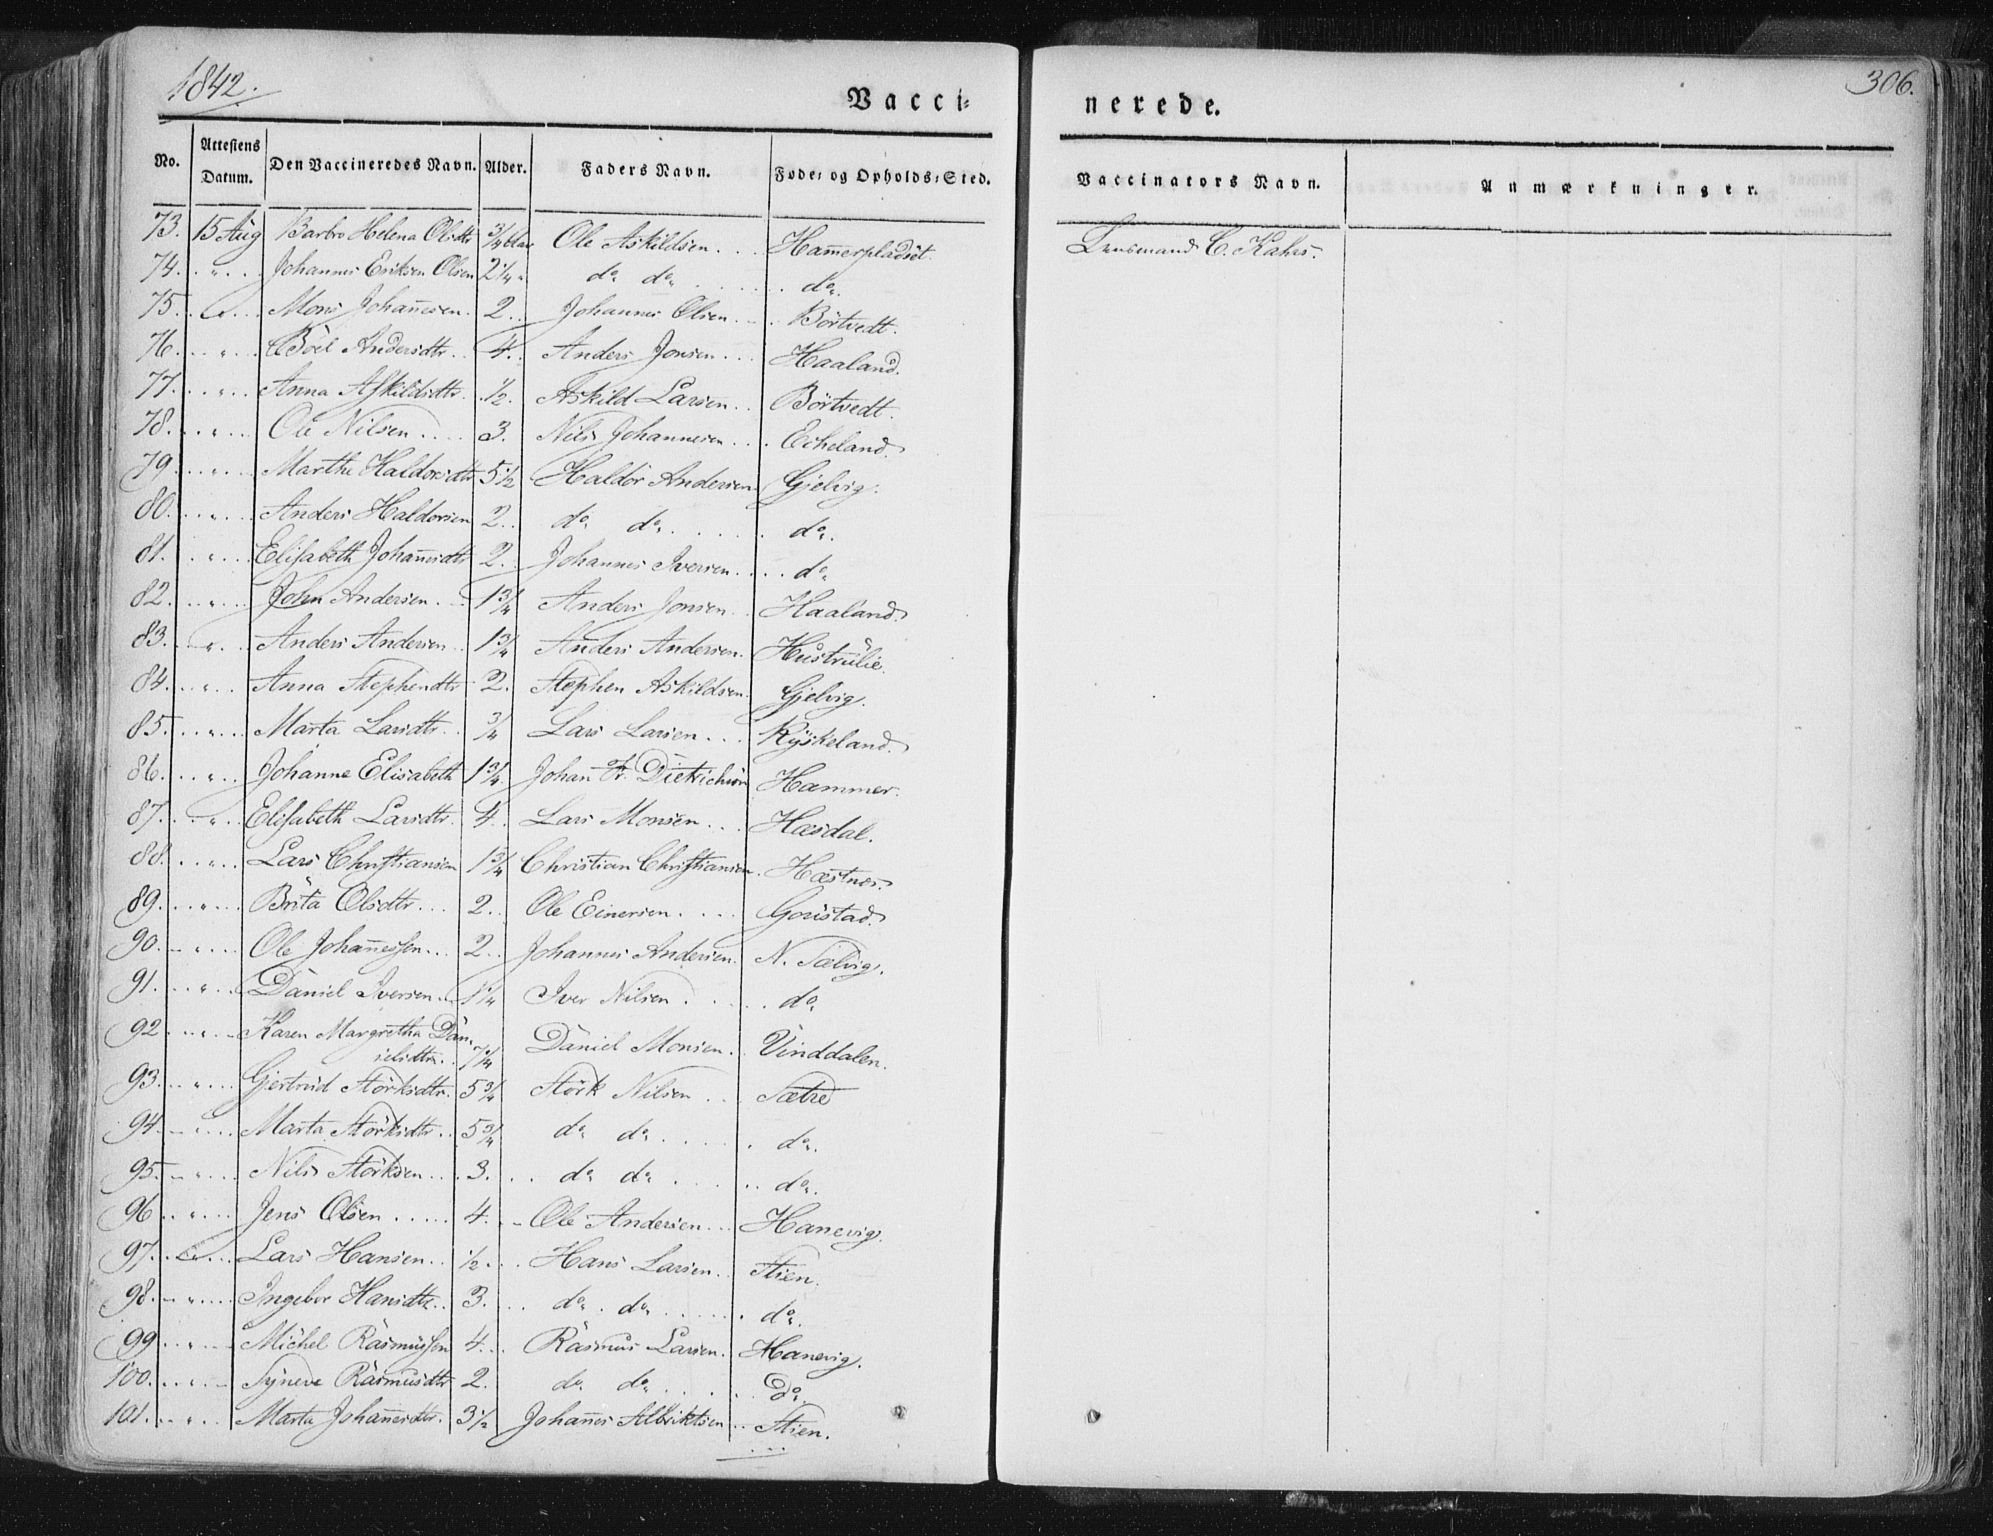 1842.
306.
Vacci=
nerede.
No. Attestens Datum. Den Vaccineredes Navn. Alder. Faders Navn. Føde- og Opholds-Sted. Vaccinators Navn. Anmærkninger.
73. 15 Aug Barbro Helena Olsdtr 3/4 Ole Askildsen... Ham̅erpladset. Lensmand C. Kahrs.
74. " Johannes Eriksen Olsen 2 1/4 " do do do.
75. " Mons Johan̅esen. 2.. Johannes Olsen... Börtvedt.
76. " Böel Andersdtr.. 4.. Anders Jonsen... Haaland.
77. " Anna Askildsdtr. 1/2. Askild Larsen.. Börtvedt.
78. " Ole Nilsen.... 3. Nils Johannesen... Echeland.
79. " Marthe Haldorsdtr 5 1/2 Haldor Andersen. Gjelvig.
80. " Anders Haldorsen 2.. do do do.
81. " Elisabeth Johan̅esdtr 2.. Johannes Iversen.... do
82. " John Andersen... 1 3/4 Anders Jonsen.. Haaland.
83. " Anders Andersen.. 1 3/4 Anders Andersen. Hustrulie.
84. " Anna Stephendtr. 2. Stephen Askildsen. Gjelvig.
85. " Marta Larsdtr.. 3/4 Lars Larsen... Ryskeland.
86. " Johanne Elisabeth 1 3/4 Johan Fr. Dietrichson Hammer.
87. " Elisabeth Larsdtr. 4.. Lars Monsen... Hæsdal.
88. " Lars Christiansen 1 3/4 Christian Christiansen. Hæstnes.
89. " Brita Olsdtr... 2.. Ole Einersen.... Goristad.
90. " Ole Johan̅essen... 2.. Johannes Andersen. N. Tælvig.
91. " Daniel Iversen.. 1 1/4 Iver Nilsen..... do
92 " Karen Margretha Dan-
ielsdtr.. 7 1/4 Daniel Monsen.. Vinddalen.
93. " Gjertrud Störksdtr. 5 3/4 Störk Nilsen.. Sætre
94. " Marta Störksdtr.. 5 3/4 do do do.
95. " Nils Störksen... 3. do do do.
96 " Jens Olsen..... 4.. Ole Andersen... Hanevig.
97. " Lars Hansen.. 1/2... Hans Larsen.. Stien.
98. " Ingebor Hansdtr.. 3. do do do.
99 " Michel Rasmussen 4.. Rasmus Larsen. Hanevig.
100. " Syneve Rasmusdtr 2. do do Do
101. " Marta Johan̅esdtr. 3 1/2 Johan̅es Albriktsen.. Stien.